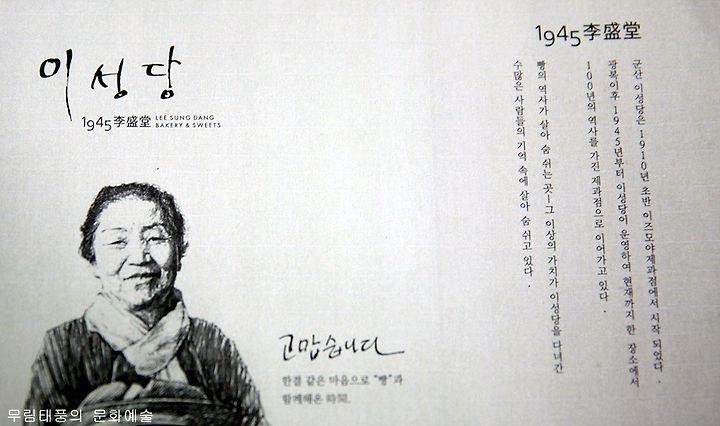 이성당
1945李盛堂 LEE SUNG DANG
BAKERY & SWEETS
1945李盛堂
군산 이성당은 1910년 초반 이즈모야제과점에서 시작 되었다.
광복이후 1945년부터 이성당이 운영하여 현재까지 한 장소에서
100년의 역사를 가진 제과점으로 이어가고 있다.
빵의 역사가 살아 숨 쉬는 곳-그 이상의 가치가 이성당을 다녀간
수많은 사람들의 기억 속에 살아 숨 쉬고 있다.
고맙습니다
한결 같은 마음으로 "빵"과
함께해온 時間.
무림태풍의 문화예술